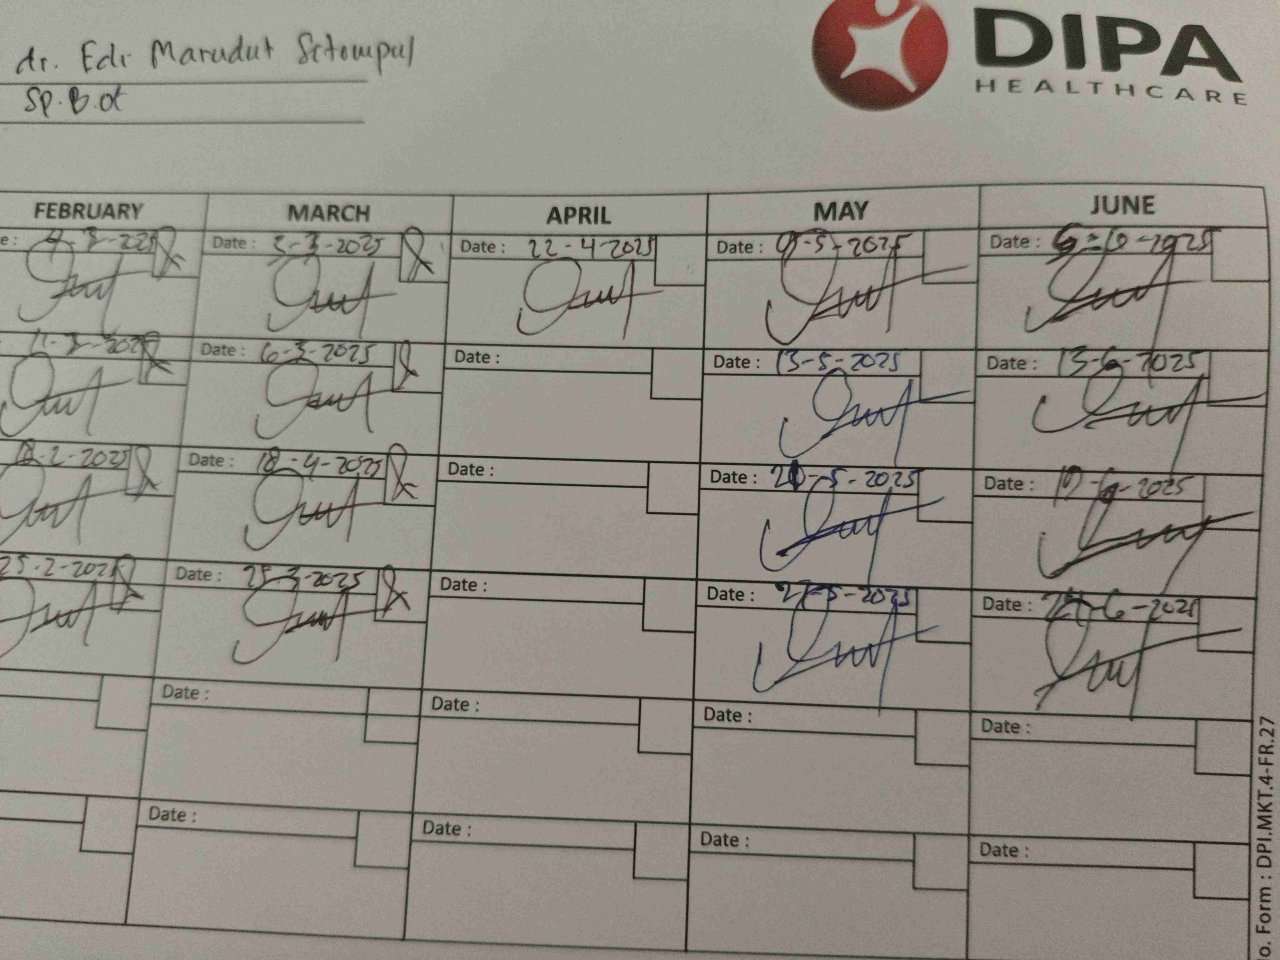 dr. Edi Marudut Sitompul
Sp.B.ot
DIPA
HEALTHCARE
FEBRUARY MARCH APRIL MAY JUNE
Date : 3-3-2025 Date : 22-4-2025 Date : 05-5-2025 Date :
11-2-2025 Date : 6-3-2025 Date : Date : 13-5-2025 Date : 13-6-2025
18-2-2025 Date : 18-4-2025 Date : Date : -5-2025 Date : 17-6-2025
25-2-2025 Date : 25-3-2025 Date : Date : 27-5-2025 Date : 24-6-2025
Date : Date : Date : Date :
Date : Date : Date : Date :
o. Form : DPI.MKT.4-FR.27